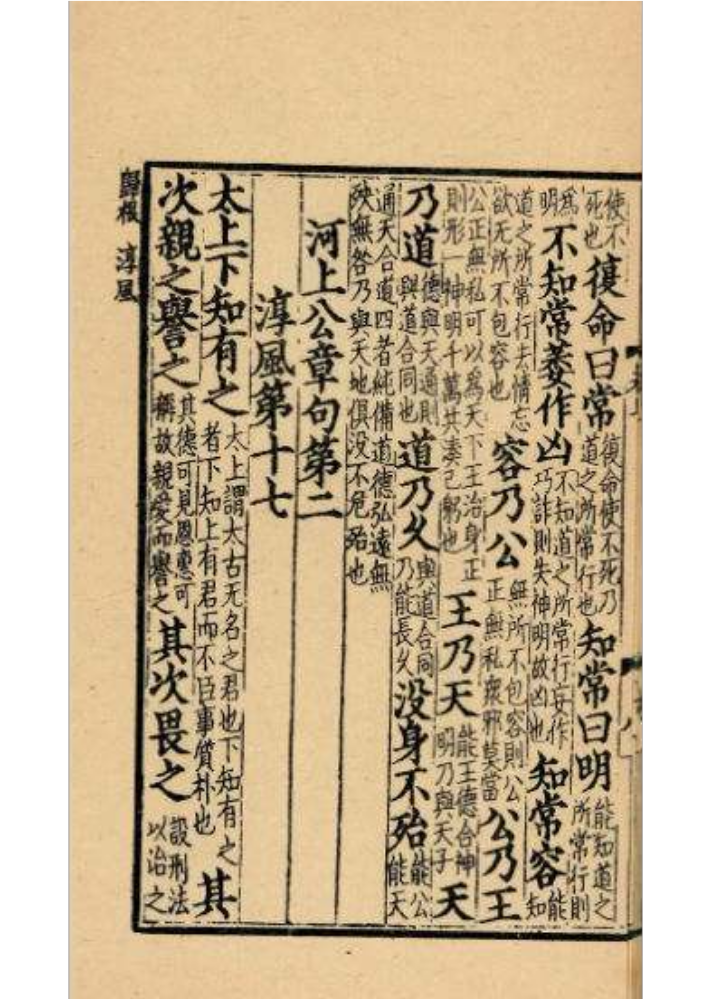 使不死也復命曰常復命使不死乃道之所常行也知常曰明能知道之所常行則
爲明不知常萎作凶不知道之所常行妄作巧詐則失神明故凶也知常容能知
道之所常行去情忘欲无所不包容也容乃公無所不包容則公正無私衆邪莫當公乃王
公正無私可以爲天下王治身正則形一神明千萬共湊己躬也王乃天能王德合神明乃與天子天
乃道德與天通則與道合同也道乃久與道合同乃能長久没身不殆能公能天
通天合道四者純備道德弘遠無殃無咎乃與天地俱没不危殆也
河上公章句第二
淳風第十七
太上下知有之太上謂太古无名之君也下知有之者下知上有君而不臣事質朴也其
次親之譽之其德可見恩惠可稱故親愛而譽之其次畏之設刑法以治之
歸根 淳風